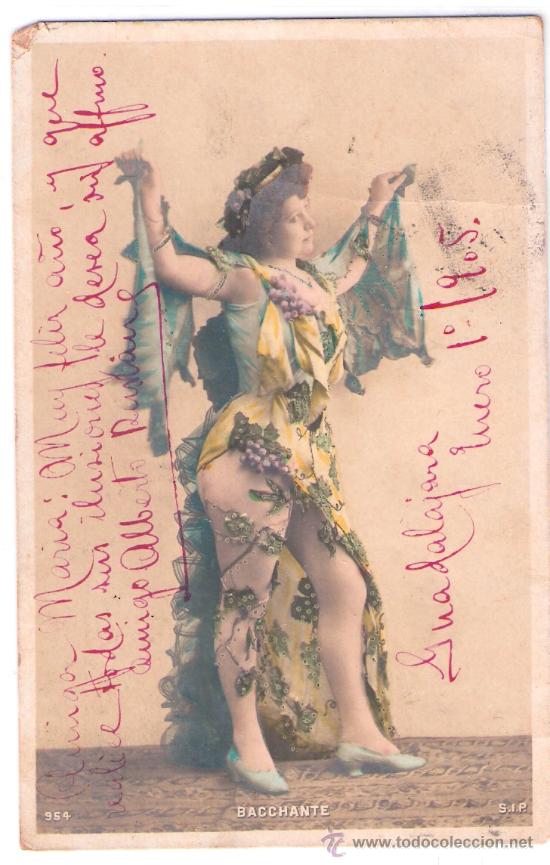 Amiga María: Muy feliz año, y que
realice todas sus ilusiones le desea su affmo.
amigo Alberto
Guadalajara
Enero 1º 1905.
954
BACCHANTE
S.I.P.
todocoleccion.net